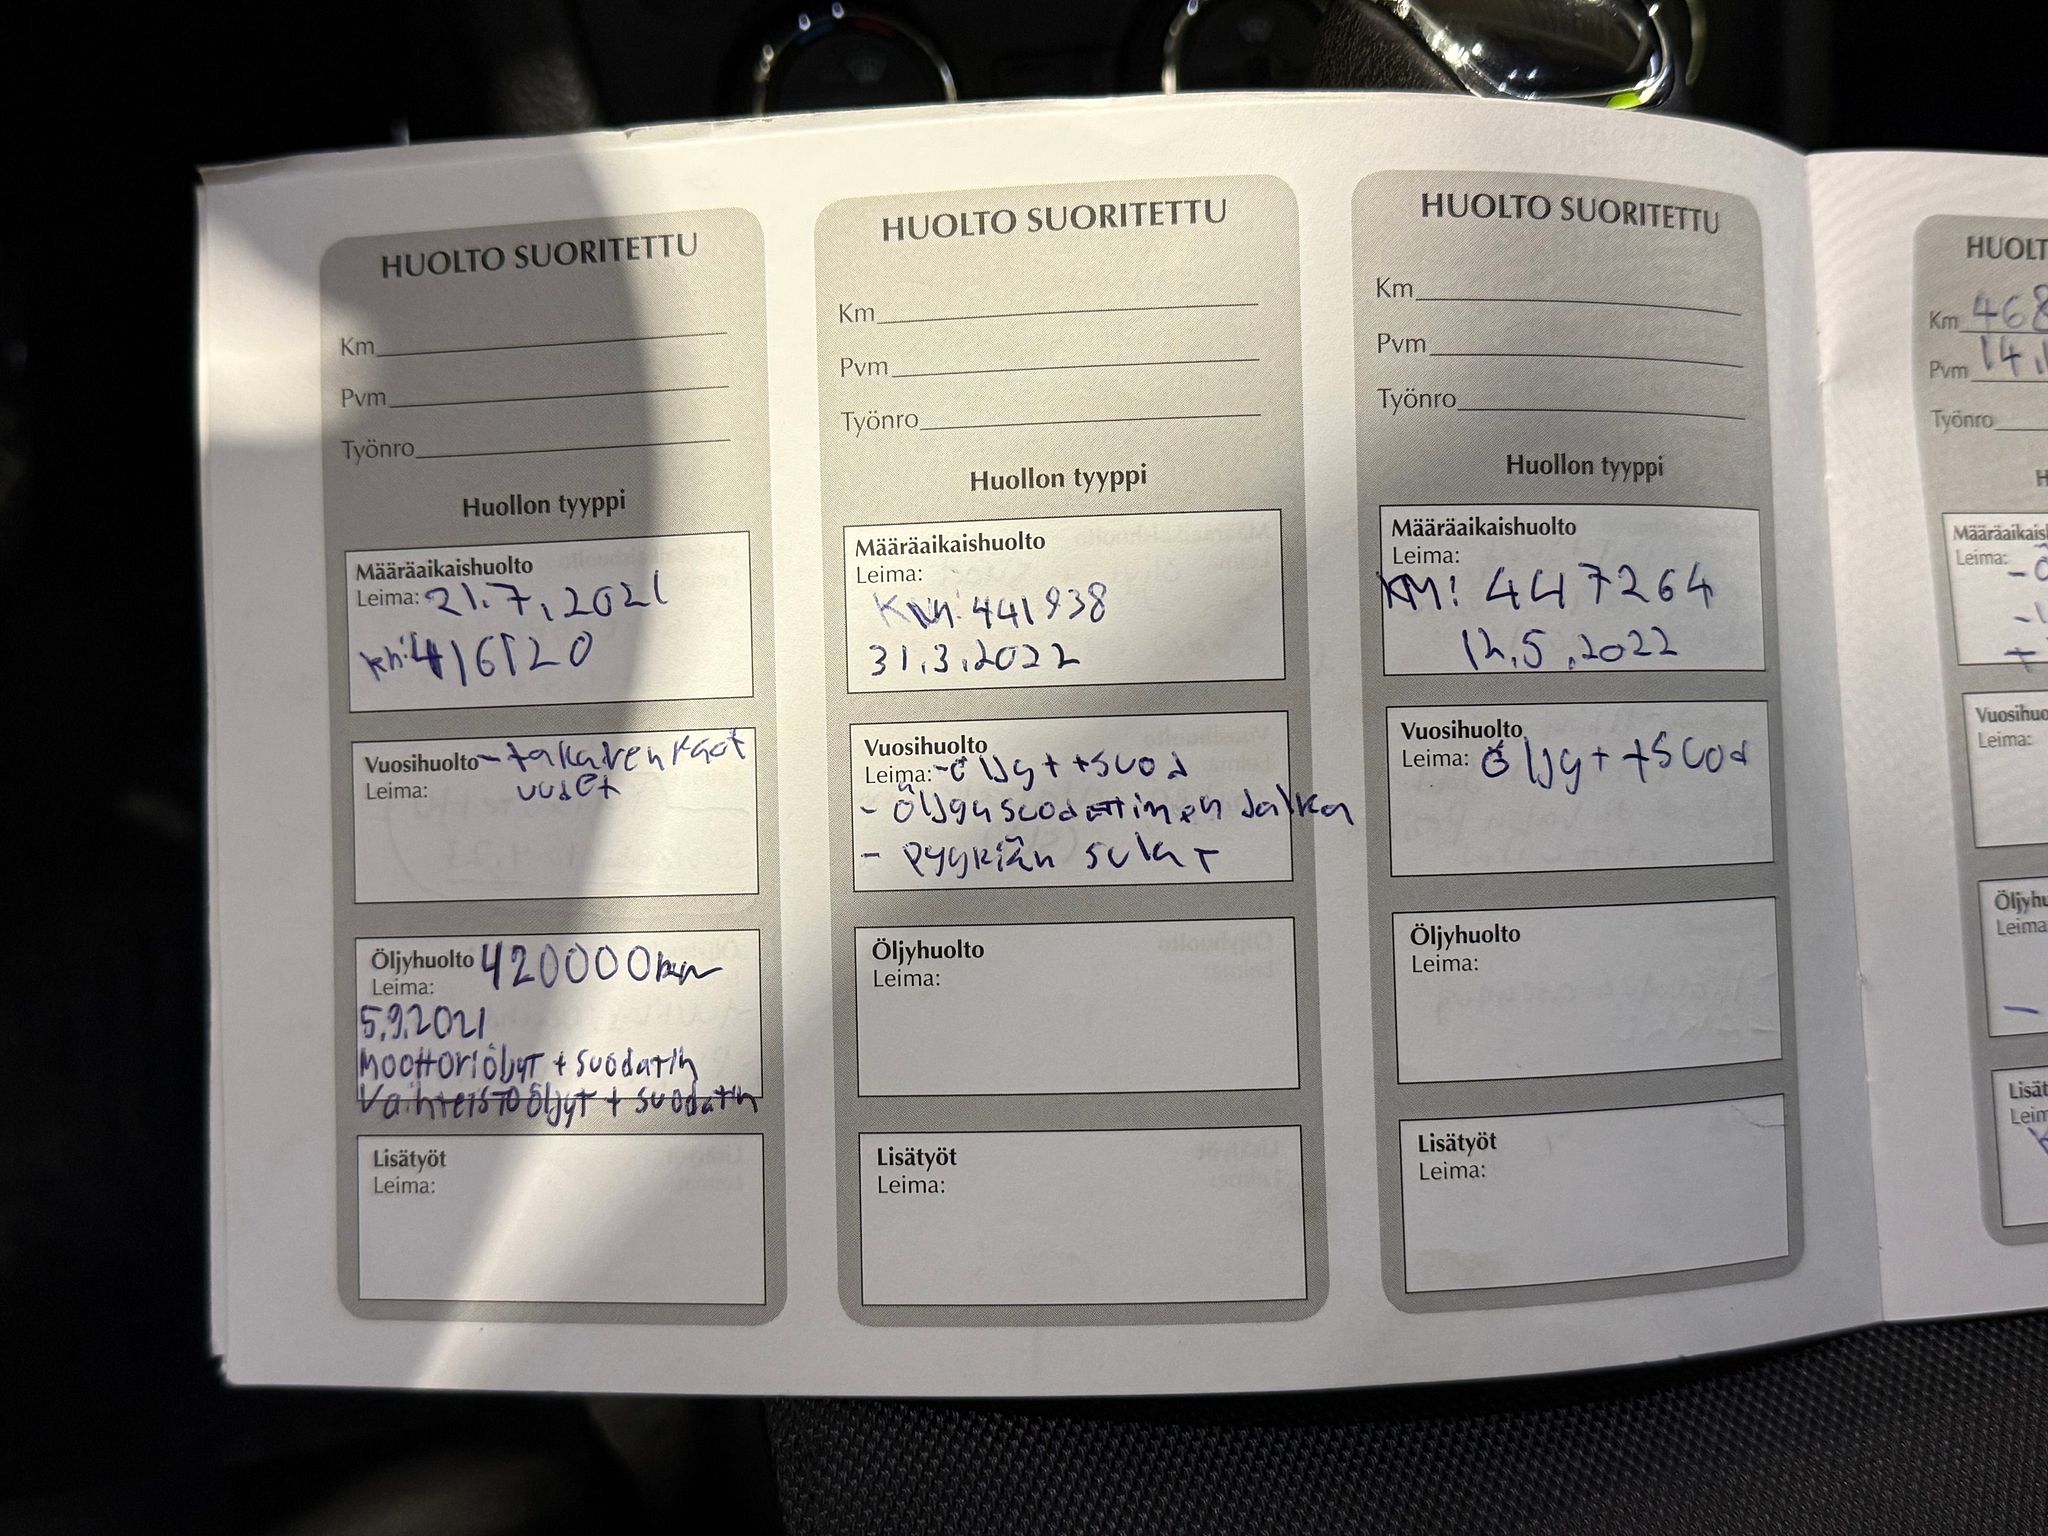 HUOLTO SUORITETTU
Km
Pvm
Työnro
Huollon tyyppi
Määräaikaishuolto
Leima: 21.7.2021
km: 416120
Vuosihuolto - takarenkaat
Leima: uudet
Öljyhuolto 420000km
Leima:
5.9.2021
Moottoriöljyt + suodatin
Vaihteistoöljyt + suodatin
Lisätyöt
Leima:
HUOLTO SUORITETTU
Km
Pvm
Työnro
Huollon tyyppi
Määräaikaishuolto
Leima:
Km: 441938
31.3.2022
Vuosihuolto
Leima: - öljyt + suod
- Öljynsuodattimen jalka
- pyyhiän sulat
Öljyhuolto
Leima:
Lisätyöt
Leima:
HUOLTO SUORITETTU
Km
Pvm
Työnro
Huollon tyyppi
Määräaikaishuolto
Leima:
KM: 447264
12.5.2022
Vuosihuolto
Leima: öljyt + suod
Öljyhuolto
Leima:
Lisätyöt
Leima:
HUOLT
Km 468
Pvm 14.
Työnro
H
Määräaikaish
Leima: - Ö
Vuosihuo
Leima:
Öljyhu
Leima
Lisät
Leim